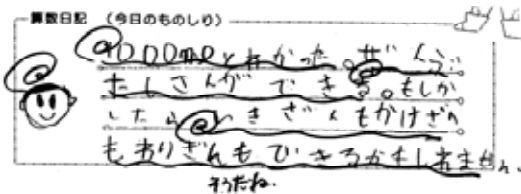 算数日記 (今日のものしり)
1000mlとわかった。ぜんぶ
たしざんができる。もしか
したら ひきざんもかけざん
もわりざんもできるかもしれません。
そうだね。